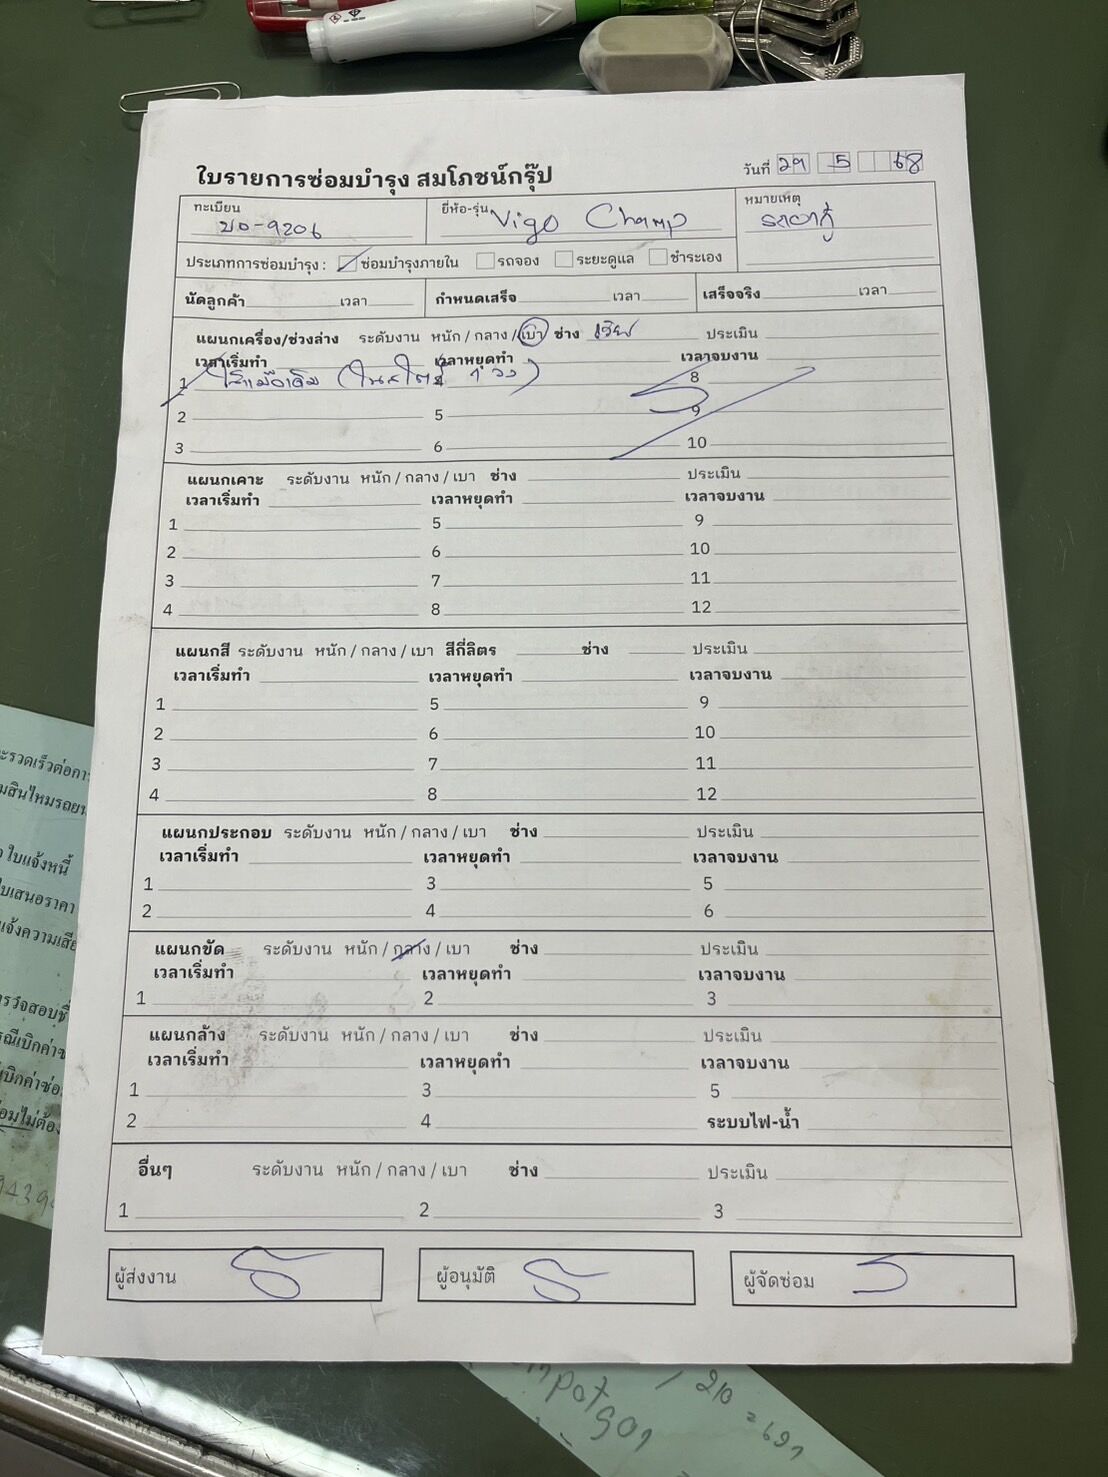 ใบรายการซ่อมบำรุง สมโภชน์กรุ๊ป
วันที่ 29 5 68
ทะเบียน ยี่ห้อ-รุ่น Vigo Champ หมายเหตุ
บอ-9206
ประเภทการซ่อมบำรุง : ซ่อมบำรุงภายใน รถจอง ระยะดูแล ชำระเอง
นัดลูกค้า เวลา กำหนดเสร็จ เวลา เสร็จจริง เวลา
แผนกเครื่อง/ช่วงล่าง ระดับงาน หนัก / กลาง / เบา ช่าง ประเมิน
เวลาเริ่มทำ เวลาหยุดทำ เวลาจบงาน
1 4 8
2 5 9
3 6 10
แผนกเคาะ ระดับงาน หนัก / กลาง / เบา ช่าง ประเมิน
เวลาเริ่มทำ เวลาหยุดทำ เวลาจบงาน
1 5 9
2 6 10
3 7 11
4 8 12
แผนกสี ระดับงาน หนัก / กลาง / เบา สีกี่ลิตร ช่าง ประเมิน
เวลาเริ่มทำ เวลาหยุดทำ เวลาจบงาน
1 5 9
2 6 10
3 7 11
4 8 12
แผนกประกอบ ระดับงาน หนัก / กลาง / เบา ช่าง ประเมิน
เวลาเริ่มทำ เวลาหยุดทำ เวลาจบงาน
1 3 5
2 4 6
แผนกขัด ระดับงาน หนัก / กลาง / เบา ช่าง ประเมิน
เวลาเริ่มทำ เวลาหยุดทำ เวลาจบงาน
1 2 3
แผนกล้าง ระดับงาน หนัก / กลาง / เบา ช่าง ประเมิน
เวลาเริ่มทำ เวลาหยุดทำ เวลาจบงาน
1 3 5
2 4 ระบบไฟ-น้ำ
อื่นๆ ระดับงาน หนัก / กลาง / เบา ช่าง ประเมิน
1 2 3
ผู้ส่งงาน ผู้อนุมัติ ผู้จัดซ่อม
ใบแจ้งหนี้
210